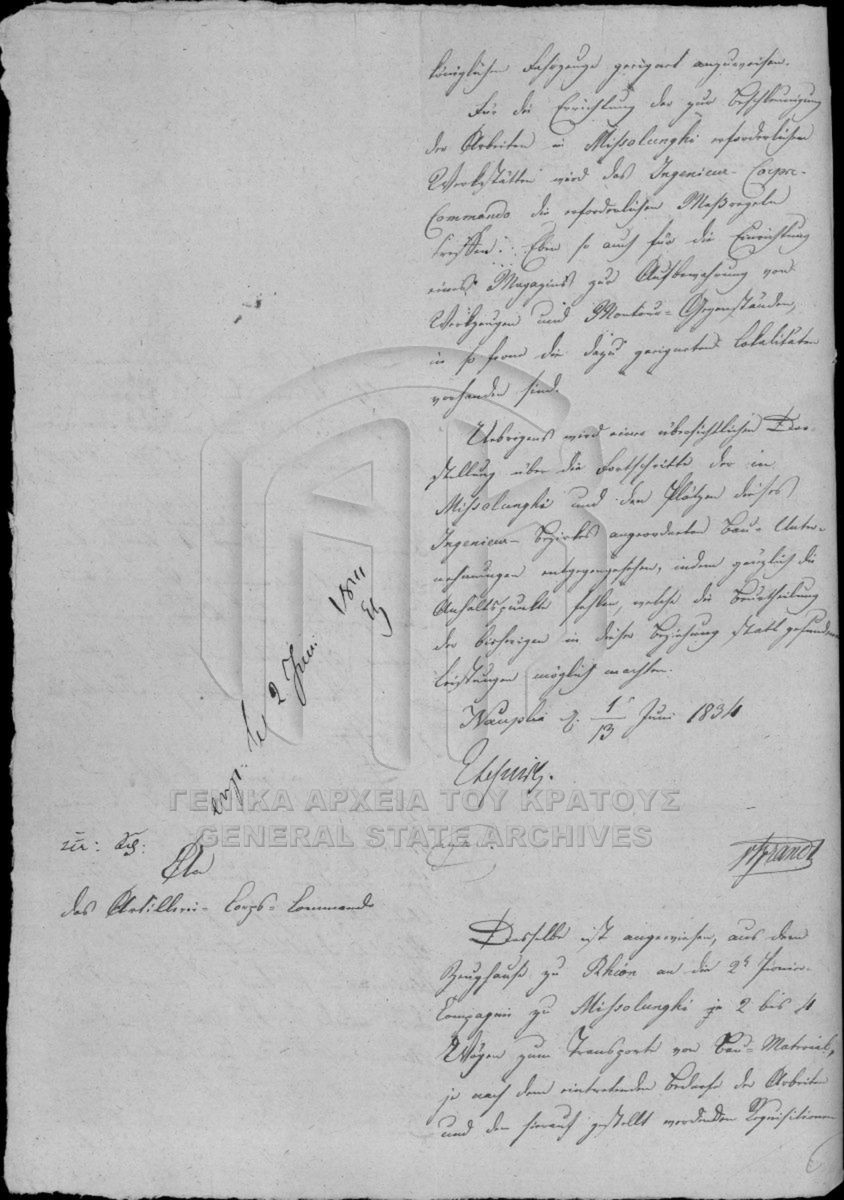 königlichen Fahrzeuge geeignet anzuweisen.
Für die Errichtung der zur Beschleunigung
der Arbeiten in Missolunghi erforderlichen
Werkstätten wird das Ingenieur-Corps-
Commando die erforderlichen Maßregeln
treffen. Eben so auch für die Einrichtung
eines Magazins zur Aufbewahrung von
Werkzeugen und Montour-Gegenständen,
in so ferne die dazu geeigneten Lokalitäten
vorhanden sind.
Uebrigens wird einer übersichtlichen Dar-
stellung über die Fortschritte der in
Missolunghi und den Plätzen dieses
Ingenieur-Bezirkes angeordneten Bau-Unter-
nehmungen entgegengesehen, indem gänzlich die
Anhaltspunkte fehlen, welche die Beurtheilung
der bisherigen in dieser Beziehung statt gefundenen
Leistungen möglich machten.
Nauplia d. 1/13 Juni 1834
exp. le 2 Juni 1834
An
das Artillerie-Corps-Commando
Dasselbe ist angewiesen, aus dem
Zeughauß zu Rhion an die 2te Pionier-
Compagnie zu Missolunghi je 2 bis 4
Wägen zum Transporte von Bau-Material,
je nach dem eintretenden Bedarfe der Arbeiten
und den hierauf gestellt werdenden Requisitionen
ΓΕΝΙΚΑ ΑΡΧΕΙΑ ΤΟΥ ΚΡΑΤΟΥΣ
GENERAL STATE ARCHIVES